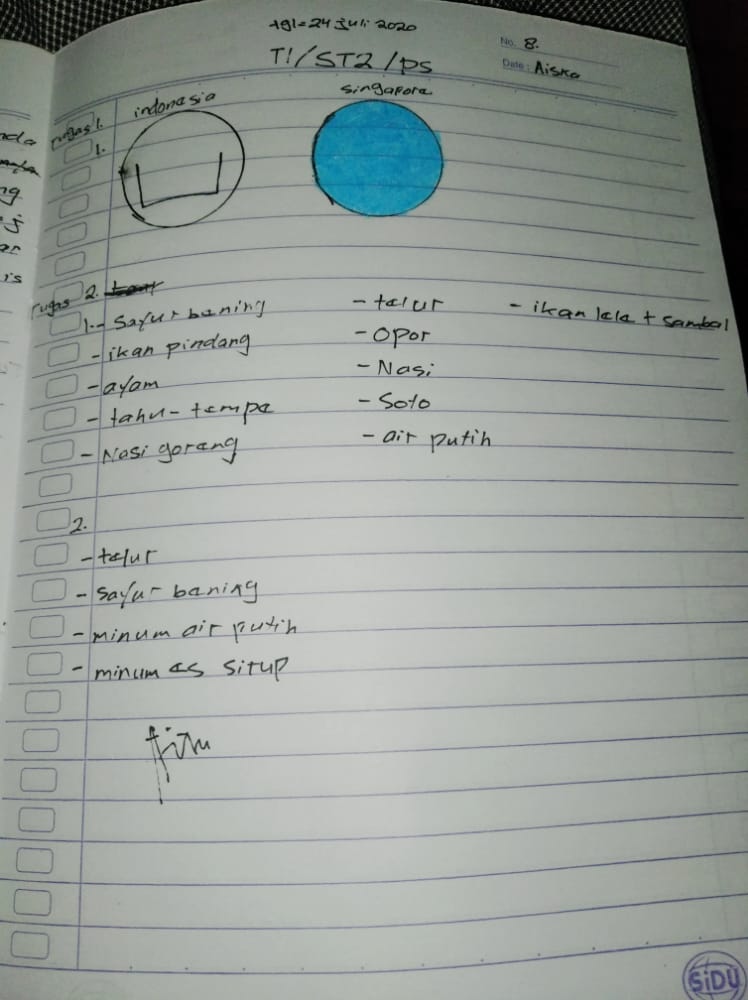 tgl = 24 juli 2020
No. 8.
T1/ST2/ps
Date: Aiska
Tugas 1. indonesia singapore
1.
Tugas 2.
1. - Sayur bening - telur - ikan lele + sambal
- ikan pindang - Opor
- ayam - Nasi
- tahu - tempe - Soto
- Nasi goreng - air putih
2.
- telur
- sayur bening
- minum air putih
- minum es sirup
SiDU